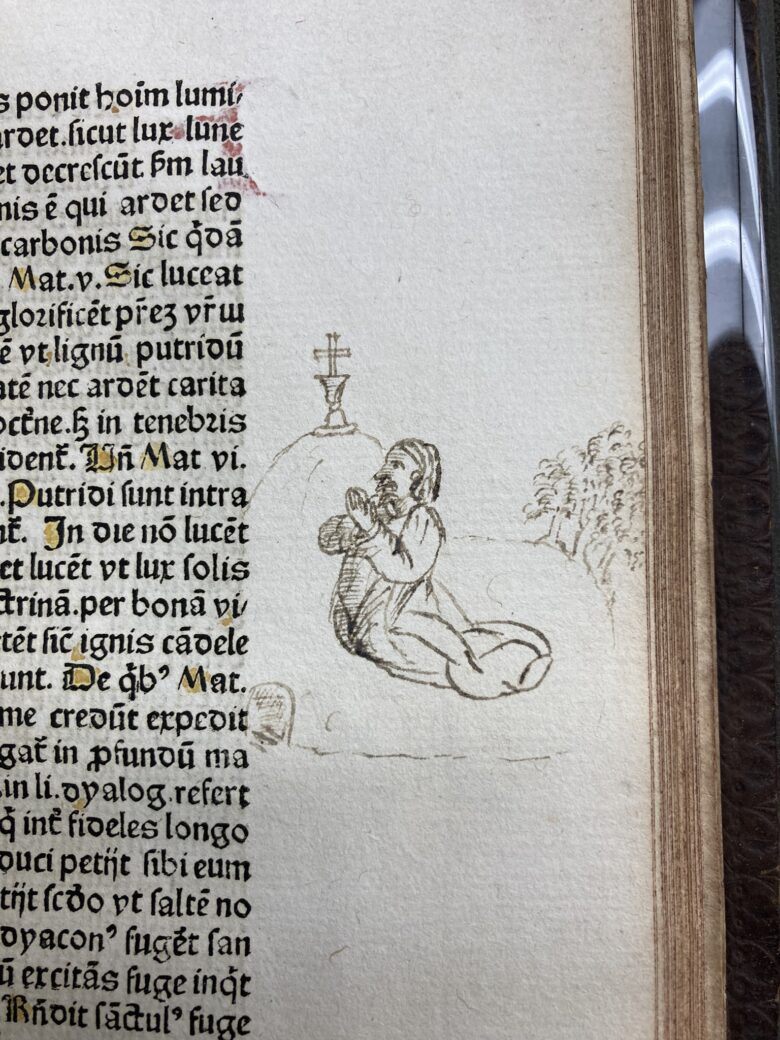 s ponit hoīm lumi/
rdet.sicut lux lune
et decrescūt ꝑm lau
nis ē qui ardet sed
carbonis Sic q̄dā
Mat.v.Sic luceat
glorificēt pr̄eꝫ vr̄ꝫ
ē vt lignū putridū
atē nec ardēt carita
octͬne.sꝫ in tenebris
identͬ. Un̄ Mat vi.
.Putridi sunt intra
ntͬ. In die nō lucēt
et lucēt vt lux solis
ctrinā.per bonā vi/
tēt sic̄ ignis cādele
unt. De q̄bꝰ Mat.
me credūt expedit
gatͬ in ꝓfundū ma
.in li.dyalog.refert
q̄ intͬ fideles longo
duci petijt sibi eum
tijt scd̄o vt saltē no
dyaconꝰ fugēt san
ū excitās fuge inq̄t
Rn̄dit sāctulꝰ fuge